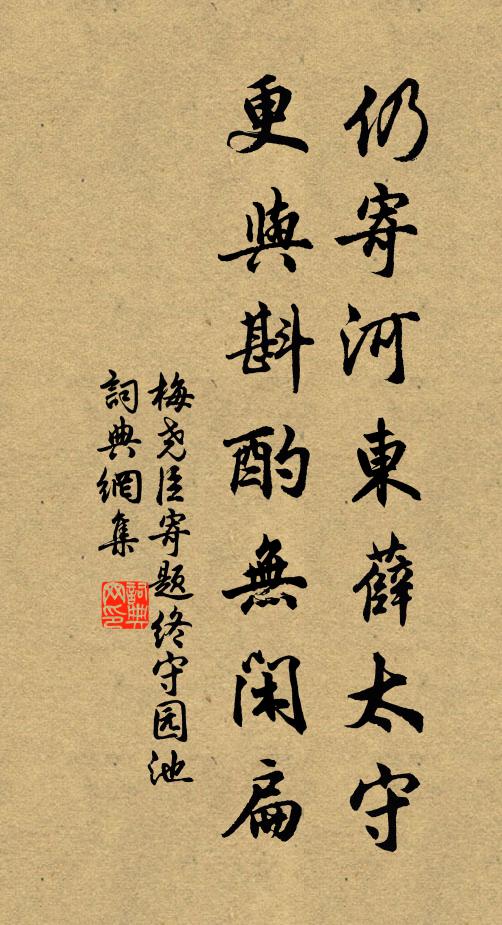 仍寄河東薛太守
更與斟酌無閑扁
梅尧臣寄题终守园池
詞典網集
詞典
网印